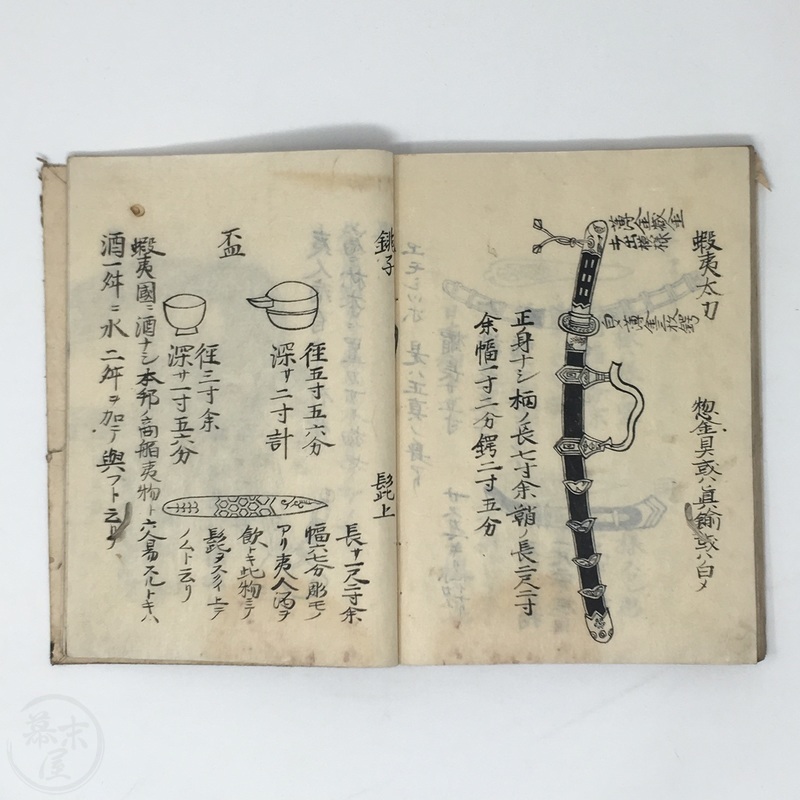 蝦夷太刀
惣金具或ハ真鍮或ハ白メ
薄金
并出模様
白薄金三枚鍔
正身ナシ柄ノ長七寸余鞘ノ長二尺二寸
余幅一寸二分鍔二寸五分
銚子
径五寸五六分
深サ二寸計
髭上
長サ一尺二寸余
幅六七分彫モノ
アリ夷人酒ヲ
飲トキ此物ニテ
髭ヲスクイ上テ
ノムト云リ
盃
径三寸余
深サ一寸五六分
蝦夷國ニ酒ナシ本邦ノ商舶夷物ト交易スルトキハ
酒一舛ニ水二舛ヲ加テ與フト云リ
幕末屋